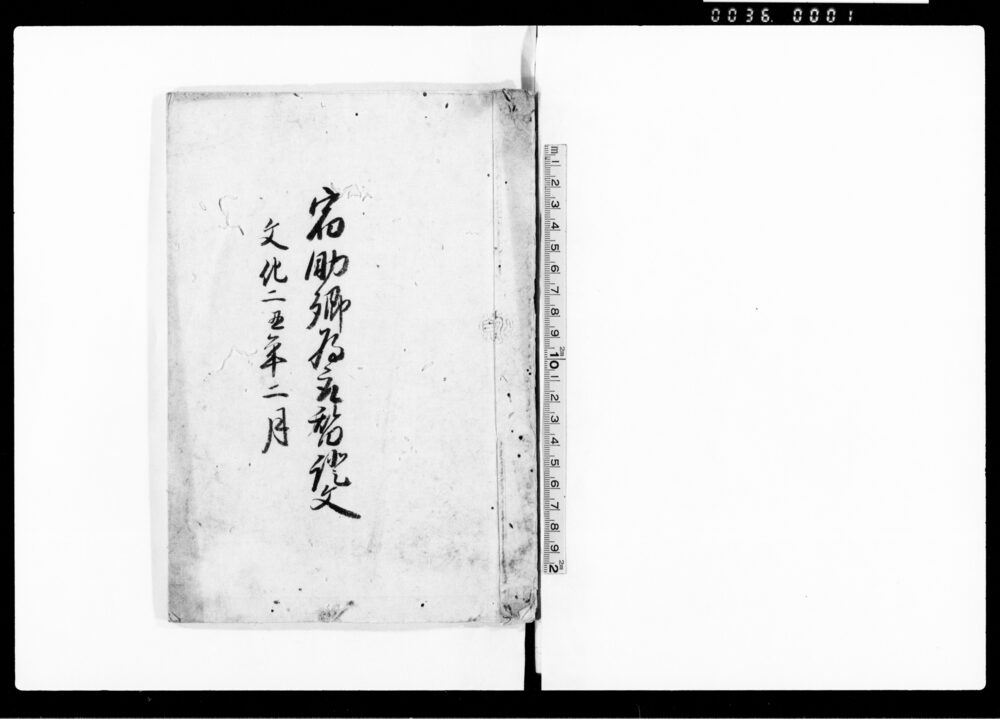 0036. 0001
宿助郷為取替證文
文化二丑年二月
m 1 2 3 4 5 6 7 8 9 10 1 2 3 4 5 6 7 8 9 2